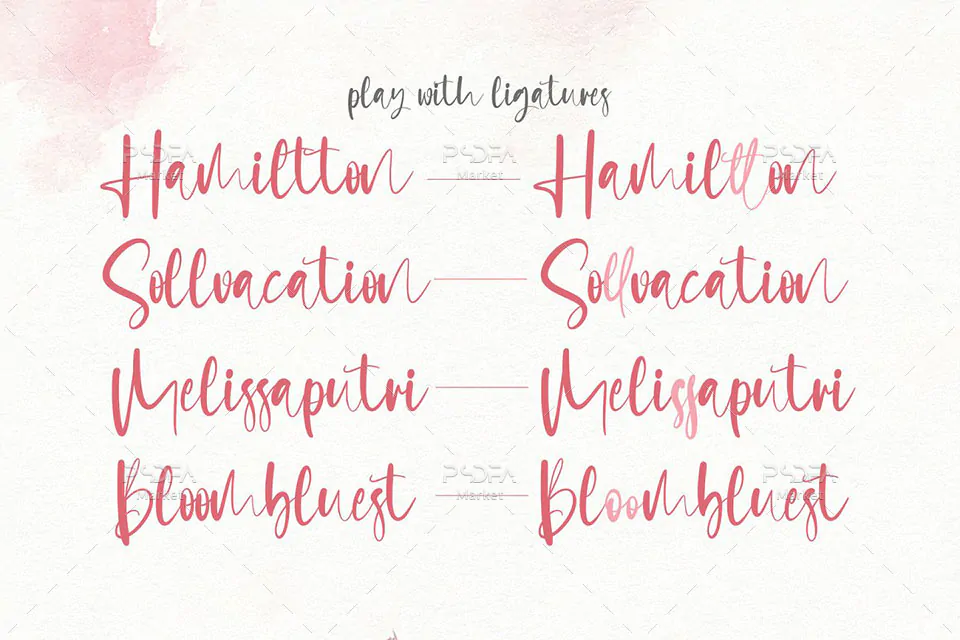 play with ligatures
Hamiltton Hamiltton
Sollvacation Sollvacation
Melissaputri Melissaputri
Bloombluest Bloombluest
PSDFA Market PSDFA Market PSDFA Market
PSDFA Market PSDFA Market PSDFA Market